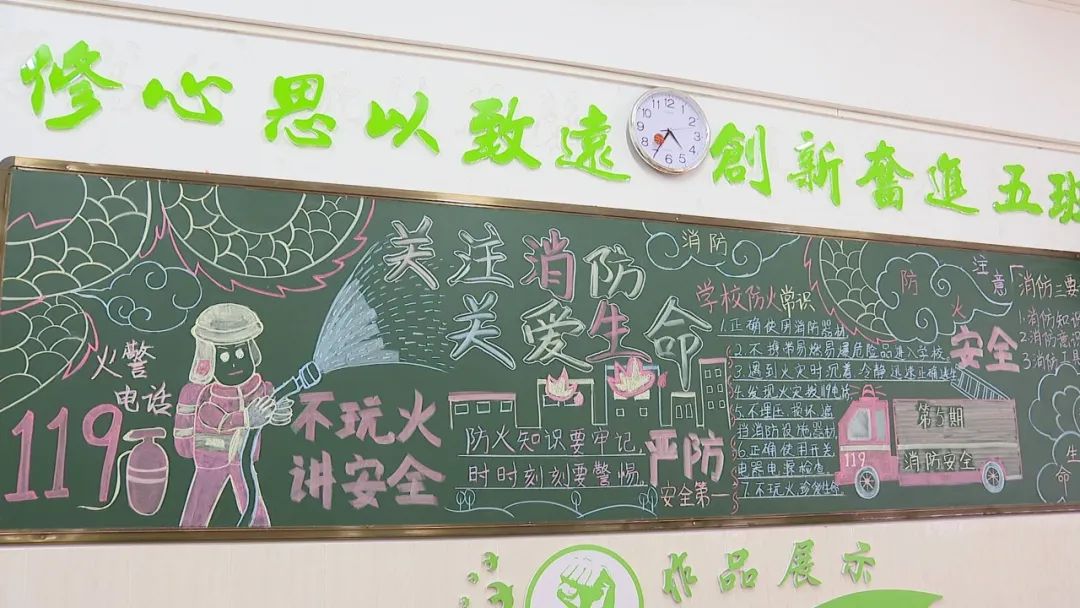 修心思以致遠 創新奮進五班
12 1 2 3 4 5 6 7 8 9 10 11
关注消防
关爱生命
火警
电话
119
不玩火
讲安全
防火知识要牢记,
时时刻刻要警惕,
严防
安全第一
消防
学校防火常识
1.正确使用消防器材
2.不携带易燃易爆危险品进入学校
3.遇到火灾时沉着、冷静迅速正确逃生
4.发现火灾拨119电话
5.不埋压、损坏、遮
挡消防设施器材
6.正确使用开关,
电器电源检查
7.不玩火珍爱生命
防
火
安全
119
消防安全
注
意
消防三要
1消防知识
2.消防意识
3消防工具
生
命
作品展示